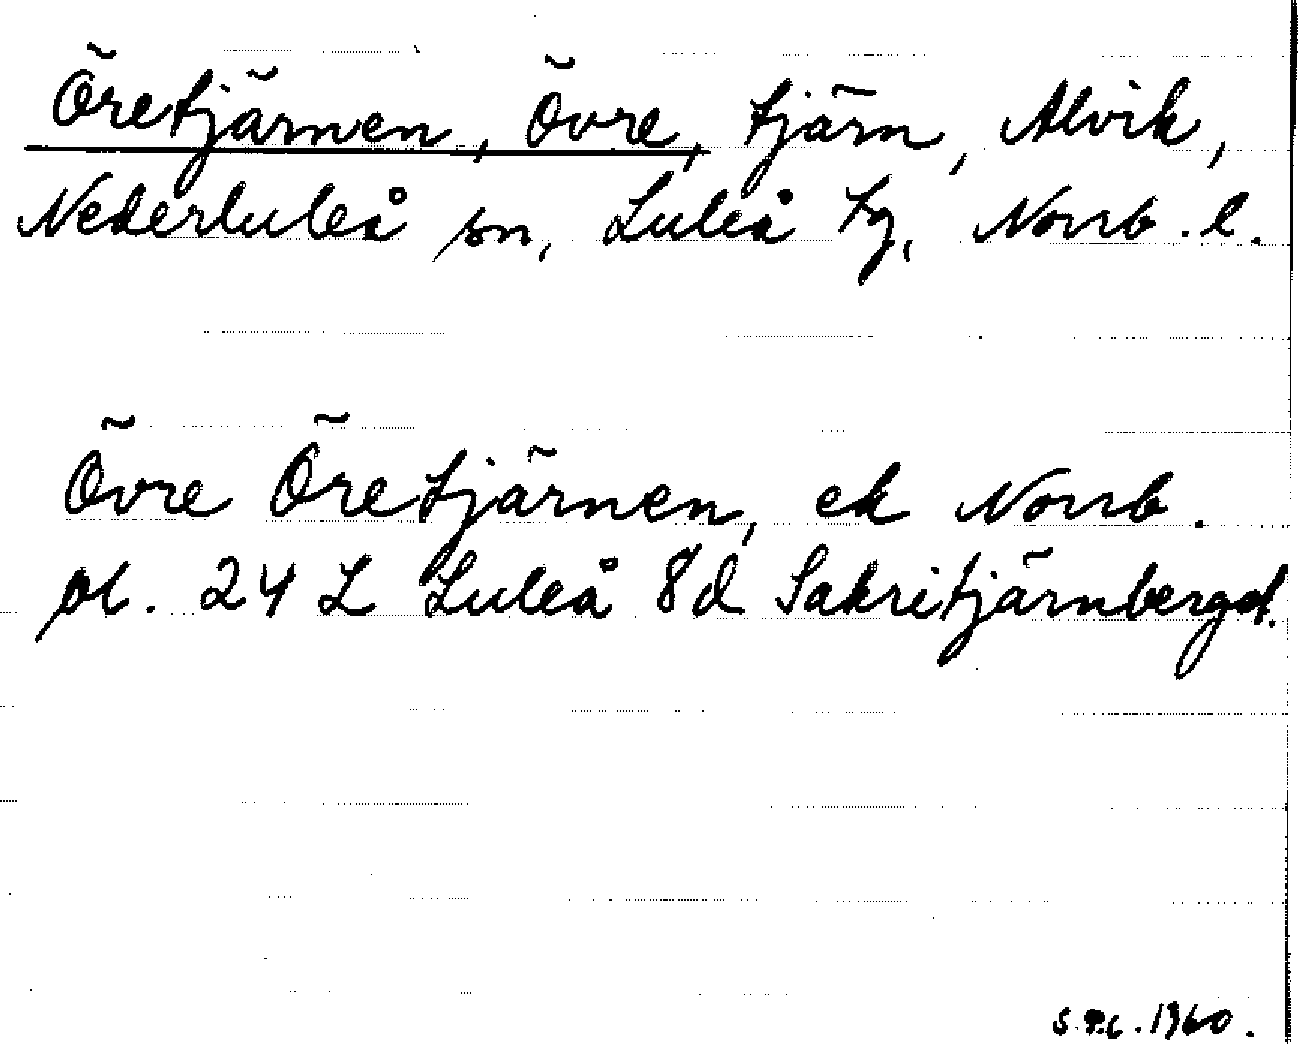 Öretjärnen, Övre, tjärn, Alvik,
Nederluleå sn, Luleå tg, Norrb. l.
Övre Öretjärnen, ek Norrb.
bl. 24 L Luleå 8d Sakritjärnbergd.
1960.